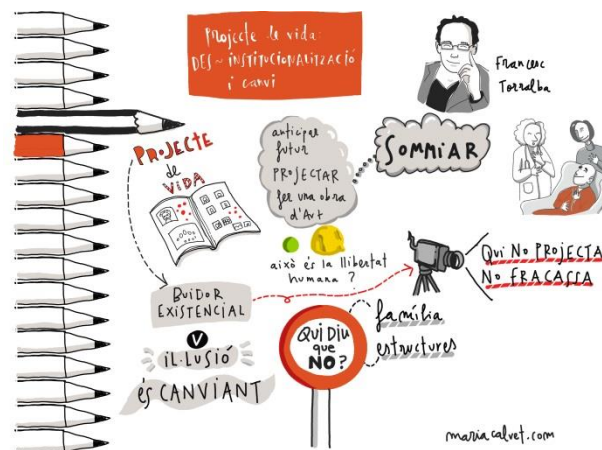 Projecte de vida:
DES~INSTITUCIONALITZACIÓ
i canvi
Francesc
Torralba
PROJECTE
de
VIDA
anticipar
futur
PROJECTAR
fer una obra
d'Art
SOMMIAR
això és la llibertat
humana ?
QUI NO PROJECTA
NO FRACASSA
BUIDOR
EXISTENCIAL
V
IL·LUSIÓ
és CANVIANT
QUI DIU
que
NO?
família
estructures
mariacalvet.com